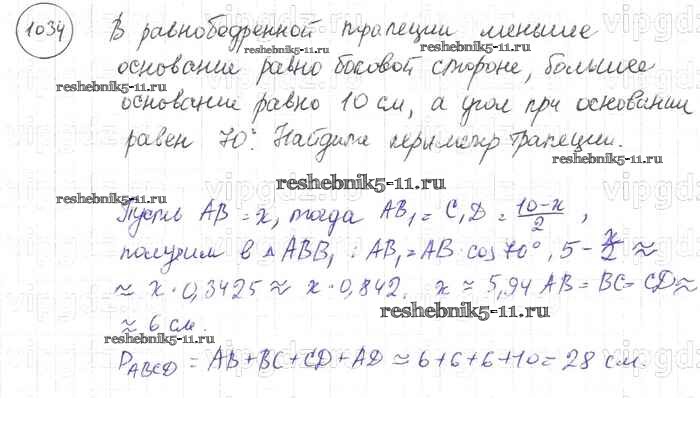 1034
В равнобедренной трапеции меньшее
основание равно боковой стороне, большее
основание равно 10 см, а угол при основании
равен 70°. Найдите периметр трапеции.
reshebnik5-11.ru
reshebnik5-11.ru
reshebnik5-11.ru
reshebnik5-11.ru
reshebnik5-11.ru
Пусть AB = x, тогда AB₁ = C₁D = (10-x)/2 ,
получим в △ ABB₁ : AB₁ = AB · cos 70°, 5 - x/2 ≈
≈ x · 0,3425 ≈ x · 0,842. x ≈ 5,94 AB = BC = CD ≈
≈ 6 см.
reshebnik5-11.ru
P_ABCD = AB + BC + CD + AD ≈ 6+6+6+10 = 28 см.